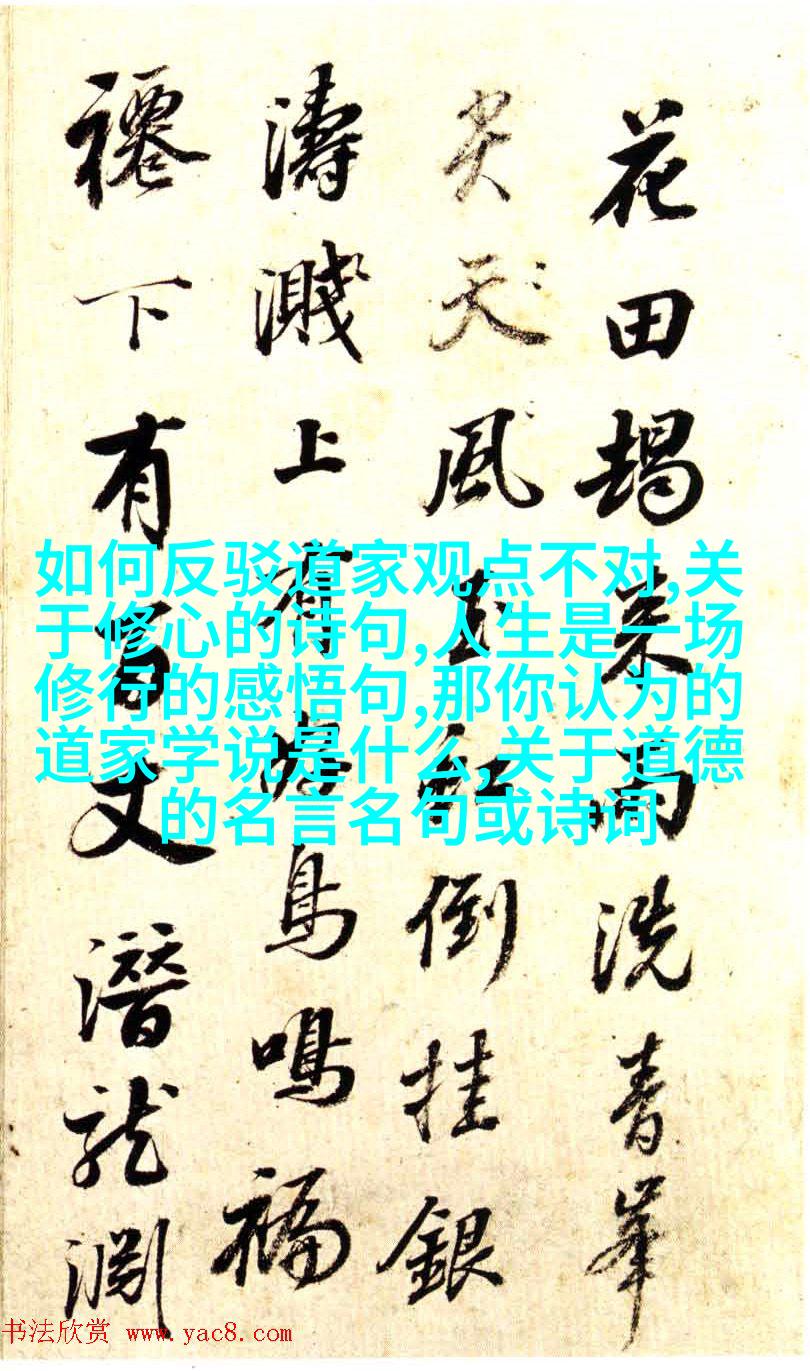 花田朅来雨洗青峯
尖天風玉虹倒挂銀
濤濺上有鳥鳴福
下有百丈潛龍淵
如何反驳道家观点不对,关
于修心的诗句,人生是一场
修行的感悟句,那你认为的
道家学说是什么,关于道德
的名言名句或诗词
书法欣赏 www.yac8.com